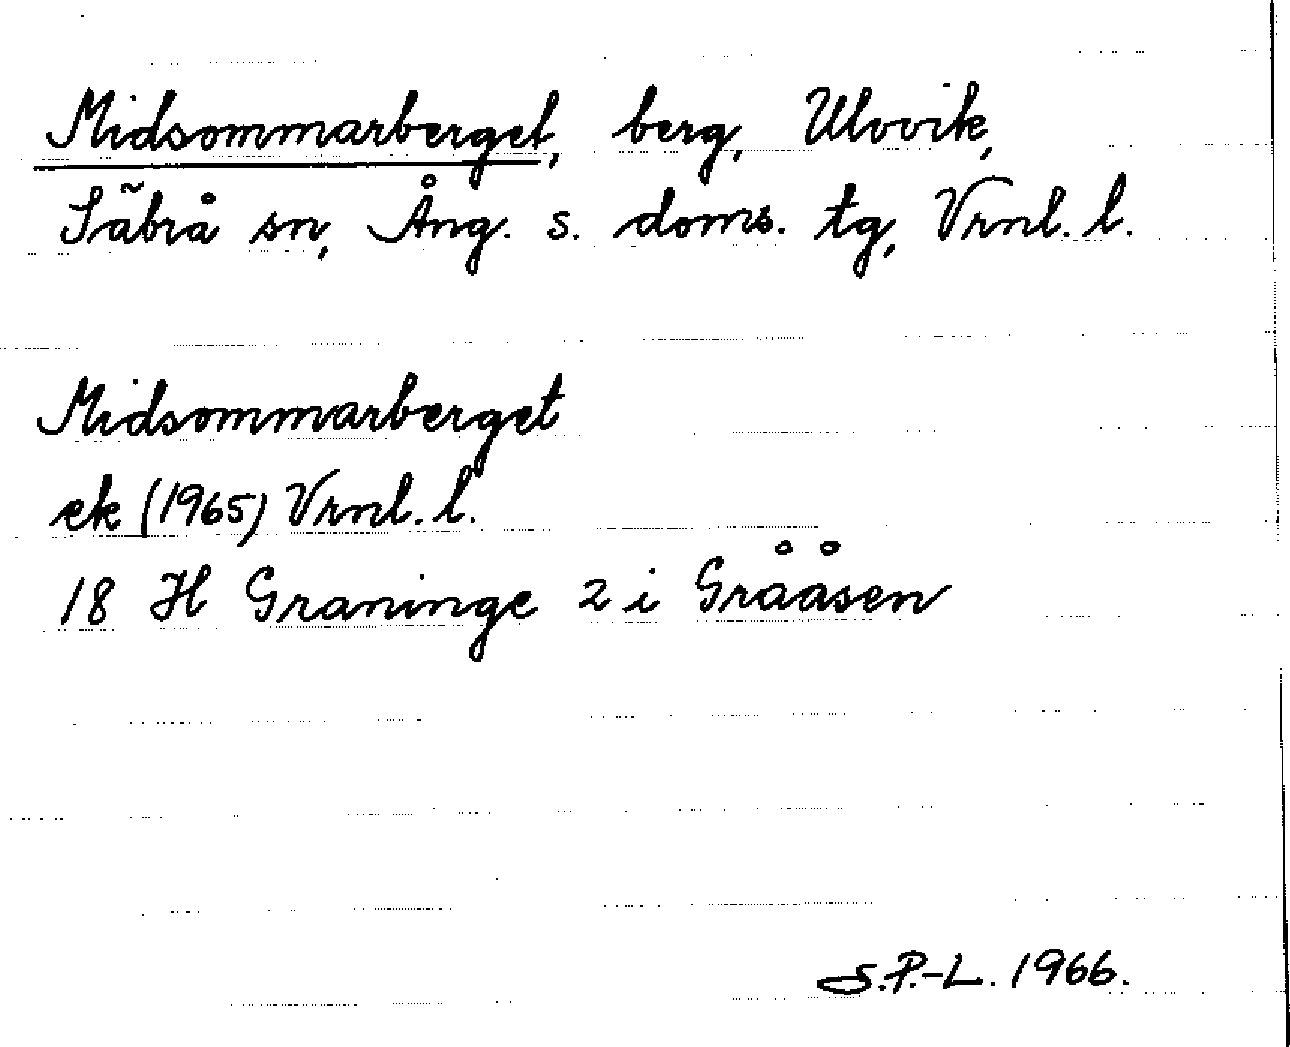 Midsommarberget, berg, Ulvvik,
Säbrå sn, Ång. s. doms. tg, Vrnl. l.
Midsommarberget
ek (1965) Vrnl. l.
18 H Graninge 2 i Grååsen
S.P.-L. 1966.